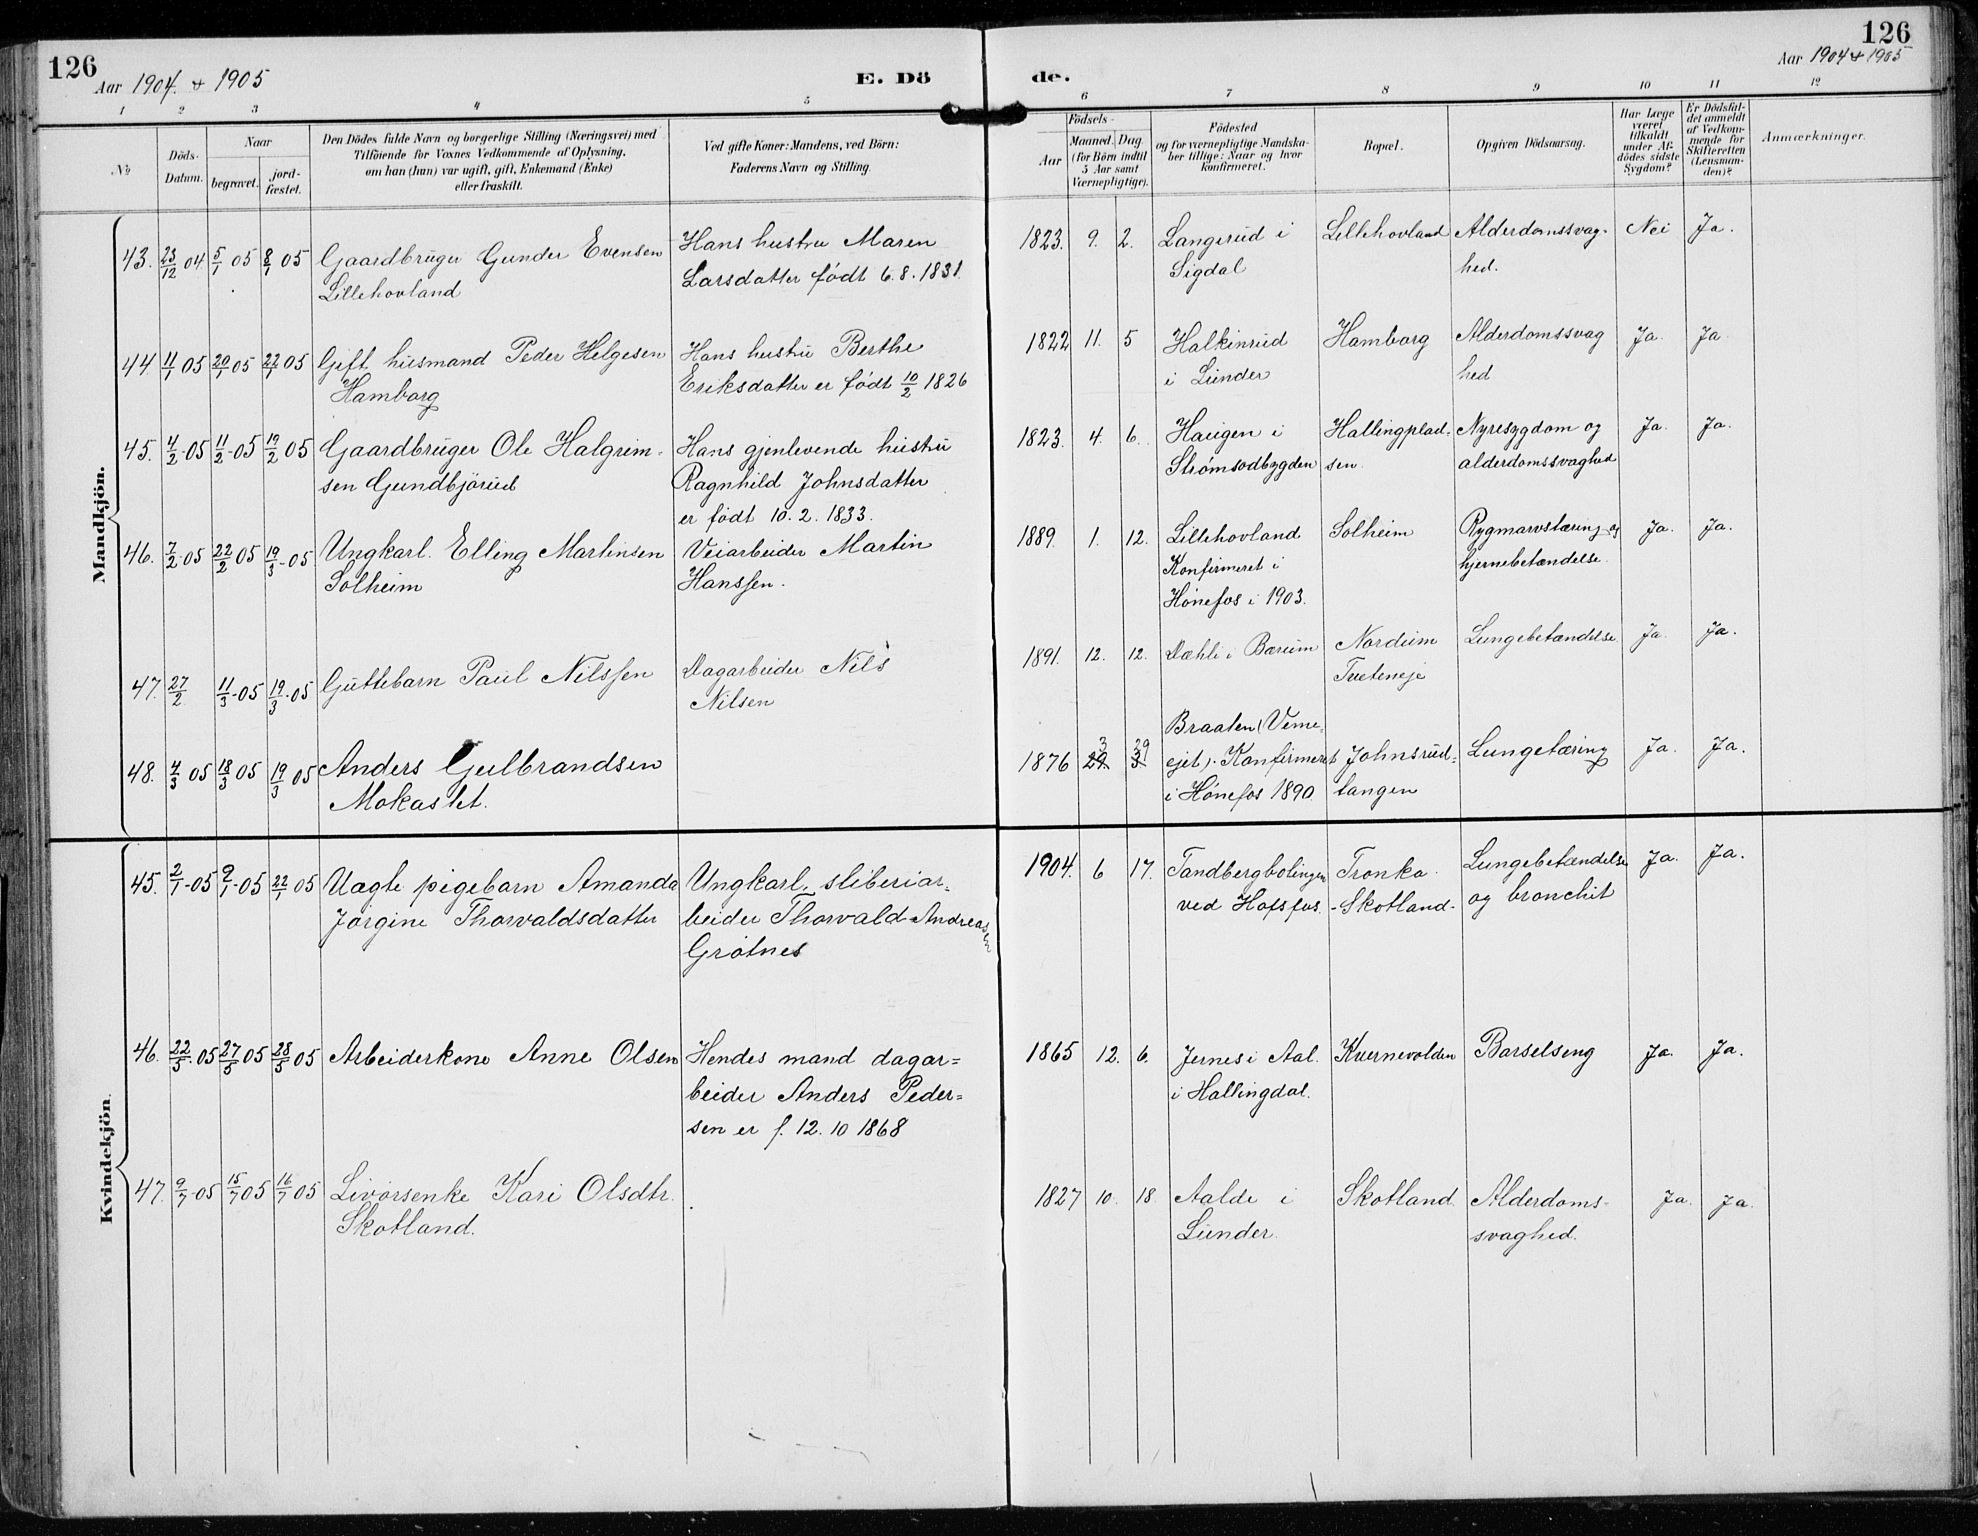 126
Aar 1904 & 1905
E. Dö
de.
126
Aar 1904 & 1905
1 2 3 4 5 6 7 8 9 10 11 12
No
Döds-
Datum.
Naar
begravet.
jord-
fæstet.
Den Dödes fulde Navn og borgerlige Stilling (Næringsvei) med
Tilföiende for Voxnes Vedkommende af Oplysning,
om han (hun) var ugift, gift, Enkemand (Enke)
eller fraskilt.
Ved gifte Koner: Mandens, ved Börn:
Faderens Navn og Stilling.
Födsels-
Aar
Maaned. Dag.
(for Börn indtil
5 Aar samt
Værnepligtige).
Födested
og for værnepligtige Mandska-
ber tillige: Naar og hvor
konfirmeret.
Bopæl.
Opgiven Dödsaarsag.
Har Læge
været
tilkaldt
under Af-
dödes sidste
Sygdom?
Er Dödsfal-
det anmeldt
af Vedkom-
mende for
Skifteretten
(Lensman-
den)?
Anmærkninger.
Mandkjön.
43. 23/12 04 5/1 05 8/1 05 Gaardbruger Gunder Evensen Hans hustru Maren 1823. 9. 2. Langerud i Lillehovland Alderdomssvag- Nei Ja.
Lillehovland Larsdatter født 6.8.1831. Sigdal hed.
44 11/1 05 20/1 05 22/1 05 Gift husmand Peder Helgesen Hans hustru Berthe 1822 11. 5 Halkinrud Hamborg Alderdomssvag Ja. Ja
Hamborg Eriksdatter er født 10/2 1826 i Lunder hed
45. 4/2-05 11/2-05 19/2 05 Gaardbruger Ole Halgrim- Hans gjenlevende hustru 1823. 4. 6. Haugen i Hallingplad- Nyresygdom og Ja. Ja.
sen Gundbjörud Ragnhild Johnsdatter Strømsodbygden sen. alderdomssvaghed
er født 10.2.1833.
46. 7/2-05 22/2 05 19/3-05 Ungkarl. Elling Martinsen Veiarbeider Martin 1889. 1. 12. Lillehovland Solheim Rygmarvstæring og Ja. Ja.
Solheim Hanssen. Konfirmeret i hjernebetændelse.
Hønefos i 1903.
47. 27/2 11/3-05 19/3-05 Guttebarn Paul Nilssen Dagarbeider Nils 1891. 12. 12. Dæhli i Bærum Lungebetændelse Ja. Ja.
Nilsen
48. 4/3 05 18/3 05 19/3 05 Anders Gulbrandsen 1876 29 3 3 29 Braaten (Veme- Johnsrud- Lungetæring Ja. Ja.
Mokastet. ejet). Konfirmeret tangen
i Hønefos 1890.
Kvindekjön.
45. 2/1-05 9/1-05 22/1 05 Uægte pigebarn Amanda Ungkarl, sliberiar- 1904. 6 17. Tandbergbolingen Lungebetændelse Ja. Ja.
Jørgine Thorvaldsdatter beider Thorvald Andreasen ved Hofsfos. -Skotland- og bronchit
Grøtnes
46. 22/5-05 27/5 05 28/5 05 Arbeiderkone Anne Olsen Hendes mand dagar- 1865 12. 6. Jernes i Aal. Kvernevolden Barselseng Ja. Ja.
beider Anders Peder- i Hallingdal.
sen er f. 12.10 1868
47. 9/7-05 15/7 05 16/7 05 Livørsenke Kari Olsdtr. 1827 10. 18. Aalde i Skotland. Alderdoms- Ja. Ja.
Skotland. Lunder. svaghed.